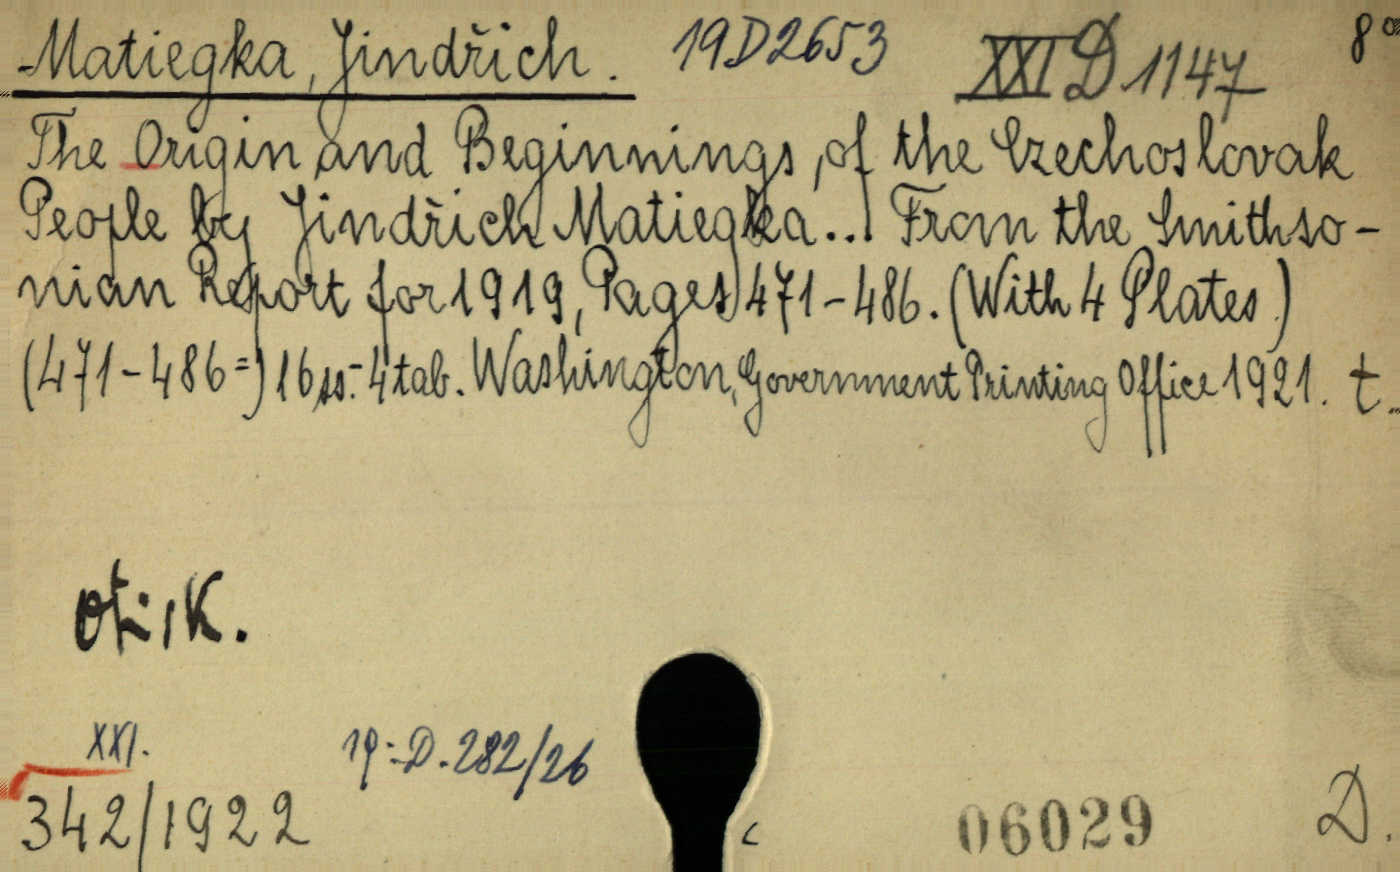 Matiegka, Jindřich. 19D2653 XXI D 1147 8°
The Origin and Beginnings of the Czechoslovak
People by Jindřich Matiegka... From the Smithso-
nian Report for 1919, Pages 471-486. (With 4 Plates.)
(471-486=) 16 ss.-4 tab. Washington, Government Printing Office 1921. t.
XXI.
19:D.282/26
342/1922
06029
D.